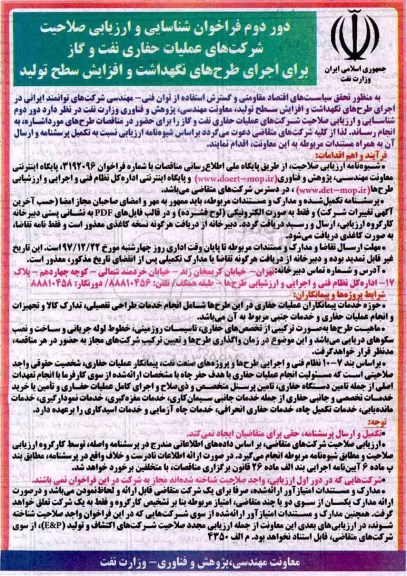 دور دوم فراخوان شناسایی و ارزیابی صلاحیت
شرکت‌های عملیات حفاری نفت و گاز
برای اجرای طرح‌های نگهداشت و افزایش سطح تولید
جمهوری اسلامی ایران
وزارت نفت
به منظور تحقق سیاست‌های اقتصاد مقاومتی و گسترش استفاده از توان فنی - مهندسی شرکت‌های توانمند ایرانی در
اجرای طرح‌های نگهداشت و افزایش سطح تولید، معاونت مهندسی، پژوهش و فناوری وزارت نفت در نظر دارد دور دوم
شناسایی و ارزیابی صلاحیت شرکت‌های عملیات حفاری نفت و گاز را برای حضور در مناقصات طرح‌های مورداشاره، به
انجام رساند. لذا از کلیه شرکت‌های متقاضی دعوت می‌گردد براساس شیوه‌نامه ارزیابی نسبت به تکمیل پرسشنامه و ارسال
آن به همراه مستندات مربوطه به این معاونت، اقدام نمایند.
فرآیند و اهم اقدامات:
شیوه‌نامه ارزیابی صلاحیت، از طریق پایگاه ملی اطلاع‌رسانی مناقصات با شماره فراخوان ۳۱۹۲۰۹۶، پایگاه اینترنتی
معاونت مهندسی، پژوهش و فناوری (www.doert-mop.ir) و پایگاه اینترنتی اداره‌کل نظام فنی و اجرایی و ارزشیابی
طرح‌ها (www.det-mop.ir)، در دسترس شرکت‌های متقاضی می‌باشد.
پرسشنامه تکمیل‌شده و مدارک و مستندات مربوطه، باید ممهور به مهر و امضای صاحبان مجاز امضا (حسب آخرین
آگهی تغییرات شرکت) و فقط به صورت الکترونیکی (لوح فشرده) و در قالب فایل‌های PDF به نشانی پستی دبیرخانه
کارگروه ارزیابی، ارسال و رسید دریافت گردد. دبیرخانه از دریافت هرگونه نسخه کاغذی معذور است و فقط نامه تقاضا،
به صورت کاغذی دریافت می‌شود.
مهلت ارسال تقاضا و مدارک و مستندات مربوطه تا پایان وقت اداری روز چهارشنبه مورخ ۹۷/۱۲/۲۲ است. این تاریخ
غیر قابل تمدید بوده و دبیرخانه از دریافت هرگونه تقاضا یا مدارک تکمیلی پس از انقضای تاریخ مذکور، معذور است.
آدرس و شماره تماس دبیرخانه: تهران - خیابان کریمخان زند - خیابان خردمند شمالی - کوچه چهاردهم - پلاک
۱۷ - اداره‌کل نظام فنی و اجرایی و ارزشیابی طرح‌ها - طبقه همکف، تلفن: ۸۸۸۱۰۴۵۶ / دورنگار: ۸۸۸۱۰۴۵۸
شرایط پروژه‌ها و پیمانکاران:
حوزه خدمات پیمانکاران عملیات حفاری در این طرح‌ها شامل انجام خدمات طراحی تفصیلی، تدارک کالا و تجهیزات
و انجام عملیات حفاری و خدمات جنبی مربوط به آن می‌باشد.
ماهیت طرح‌ها به‌صورت ترکیبی از تخصص‌های حفاری، تاسیسات روزمینی، خطوط لوله جریانی و ساخت و نصب
سکوهای دریایی می‌باشد و این موضوع در زمان واگذاری طرح‌ها و تعیین ترکیب شرکت‌های مجاز به حضور در هر مناقصه،
مدنظر قرار خواهدگرفت.
براساس بند ۷-۱۰ نظام فنی و اجرایی طرح‌ها و پروژه‌های صنعت نفت، پیمانکار عملیات حفاری، شخصیت حقوقی واجد
صلاحیتی است که مسئولیت انجام عملیات حفاری با هدف حفر چاه با مشخصات ارائه‌شده از سوی کارفرما با انجام تعهدات
اصلی از جمله تامین دستگاه حفاری، تامین پرسنل متخصص و ذی‌صلاح و اجرای کامل عملیات حفاری و تأمین یا خرید
خدمات تخصصی و جانبی حفاری از جمله خدمات جانبی سیمان‌کاری، خدمات مغزه‌گیری، خدمات نمودارگیری، خدمات
مانده‌یابی، خدمات تکمیل چاه، خدمات حفاری انحرافی، خدمات چاه آزمایی و خدمات اسیدکاری را برعهده دارد.
توجه:
تکمیل و ارسال پرسشنامه، حقی برای متقاضیان ایجاد نمی‌کند.
ارزیابی صلاحیت شرکت‌های متقاضی، بر اساس داده‌های اطلاعاتی مندرج در پرسشنامه واصله، توسط کارگروه ارزیابی
صلاحیت و مطابق شیوه‌نامه مربوطه انجام می‌گیرد. در صورت ارائه اطلاعات نادرست و خلاف واقع در پرسشنامه، مطابق بند
پ ماده ۶ آیین‌نامه اجرایی بند الف ماده ۲۶ قانون برگزاری مناقصات، با متخلفین برخورد خواهد شد.
شرکت‌هایی که در دور اول ارزیابی، واجد صلاحیت شناخته شده‌اند مجاز به شرکت در این فراخوان نمی باشند.
مدارک و مستندات امتیازآور ارائه‌شده، صرفا برای یک شرکت متقاضی قابل ارائه و لحاظ‌نمودن می‌باشد و درصورت
ارائه مدارک یکسان از سوی دو یا چند متقاضی، امتیاز مربوطه بنا بر تشخیص کارگروه و فقط به یک شرکت تعلق خواهد
گرفت. همچنین مدارک و مستندات امتیازآور ارائه‌شده از سوی شرکت‌هایی که در این فراخوان واجد صلاحیت شناخته
شوند، در ارزیابی‌های بعدی این معاونت از جمله ارزیابی مجدد صلاحیت شرکت‌های اکتشاف و تولید (E&P)، از سوی
شرکت‌های متقاضی، قابل استناد نخواهد بود. م الف ۴۳۵۰
معاونت مهندسی، پژوهش و فناوری - وزارت نفت